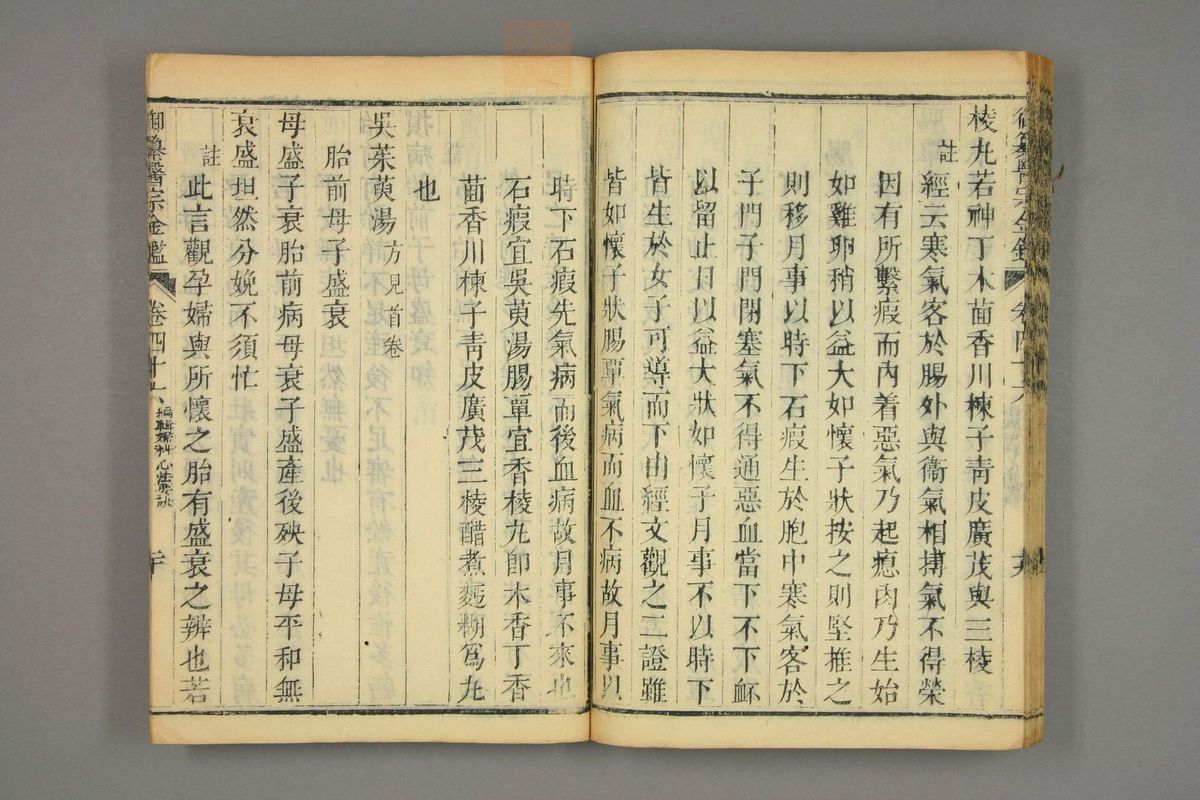 御纂醫宗金鑑 卷四十六 克
棱丸若神丁木茴香川楝子青皮廣茂與三棱
註 經云寒氣客於腸外與衞氣相搏氣不得榮
因有所繫瘕而內着惡氣乃起瘜肉乃生始
如雞卵稍以益大如懷子狀按之則堅推之
則移月事以時下石瘕生於胞中寒氣客於
子門子門閉塞氣不得通惡血當下不下衃
以留止日以益大狀如懷子月事不以時下
皆生於女子可導而下由經文觀之二證雖
皆如懷子狀腸覃氣病而血不病故月事以
時下石瘕先氣病而後血病故月事不來也
石瘕宜吳萸湯腸覃宜香棱丸卽木香丁香
茴香川楝子青皮廣茂三棱醋煮麪糊爲丸
也
吳茱萸湯 方見首卷
胎前母子盛衰
母盛子衰胎前病母衰子盛產後殃子母平和無
衰盛坦然分娩不須忙
註 此言觀孕婦與所懷之胎有盛衰之辨也若
御纂醫宗金鑑 卷四十六 編輯婦科心法要訣 二十